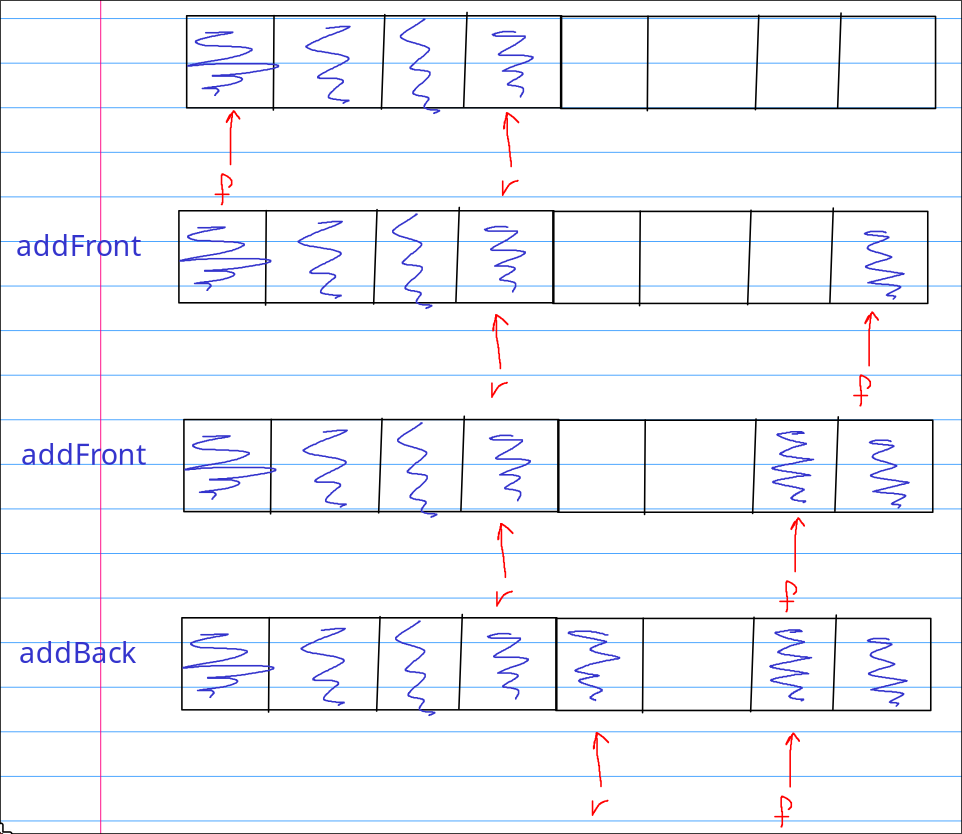 f r
addFront
r f
addFront
r f
addBack
r f